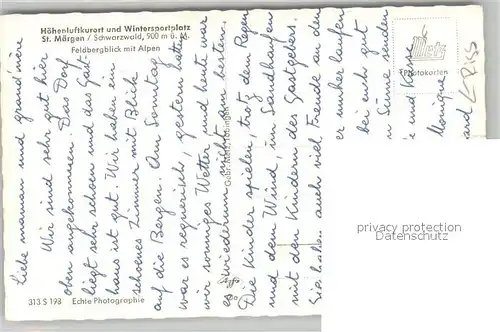 Höhenluftkurort und Wintersportplatz
St. Märgen / Schwarzwald, 900 m ü. M.
Feldbergblick mit Alpen
Liebe maman und grand'mère
Wir sind sehr gut hier
oben angekommen. Das Dorf
liegt sehr schoen und das Gast-
haus ist gut. Wir haben ein
schoenes Zimmer mit Blick
auf die Bergen. Am Sonntag
war es regnerisch, gestern hatten
wir sonniges Wetter und heute war
es wiederum nicht am besten.
Die Kinder spielen, trotz dem Regen
und dem Wind, im Sandhaufen
mit den Kindern des Gastgebers.
Sie haben auch viel Freude an den
immer laufen
bei euch gut
Sinne senden
und
Monique
Gebr. Metz, Tübingen
Agfa
Metz
Photokarten
313 S 198 Echte Photographie
privacy protection
Datenschutz